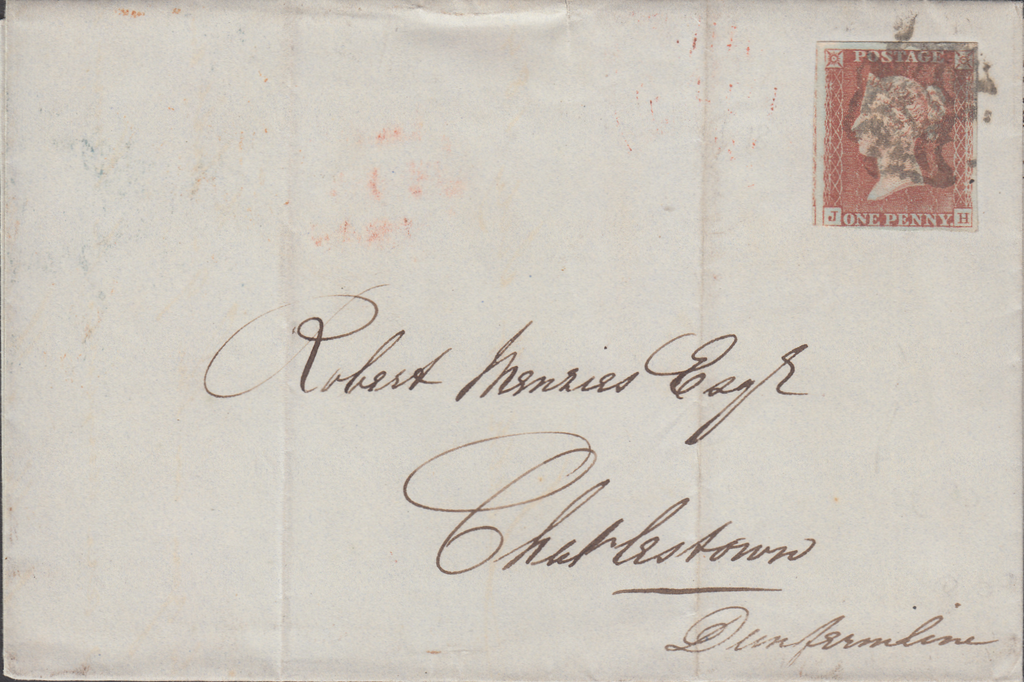 POSTAGE
J ONE PENNY. H
Robert Menzies Esqr
Charlestown
Dunfermline